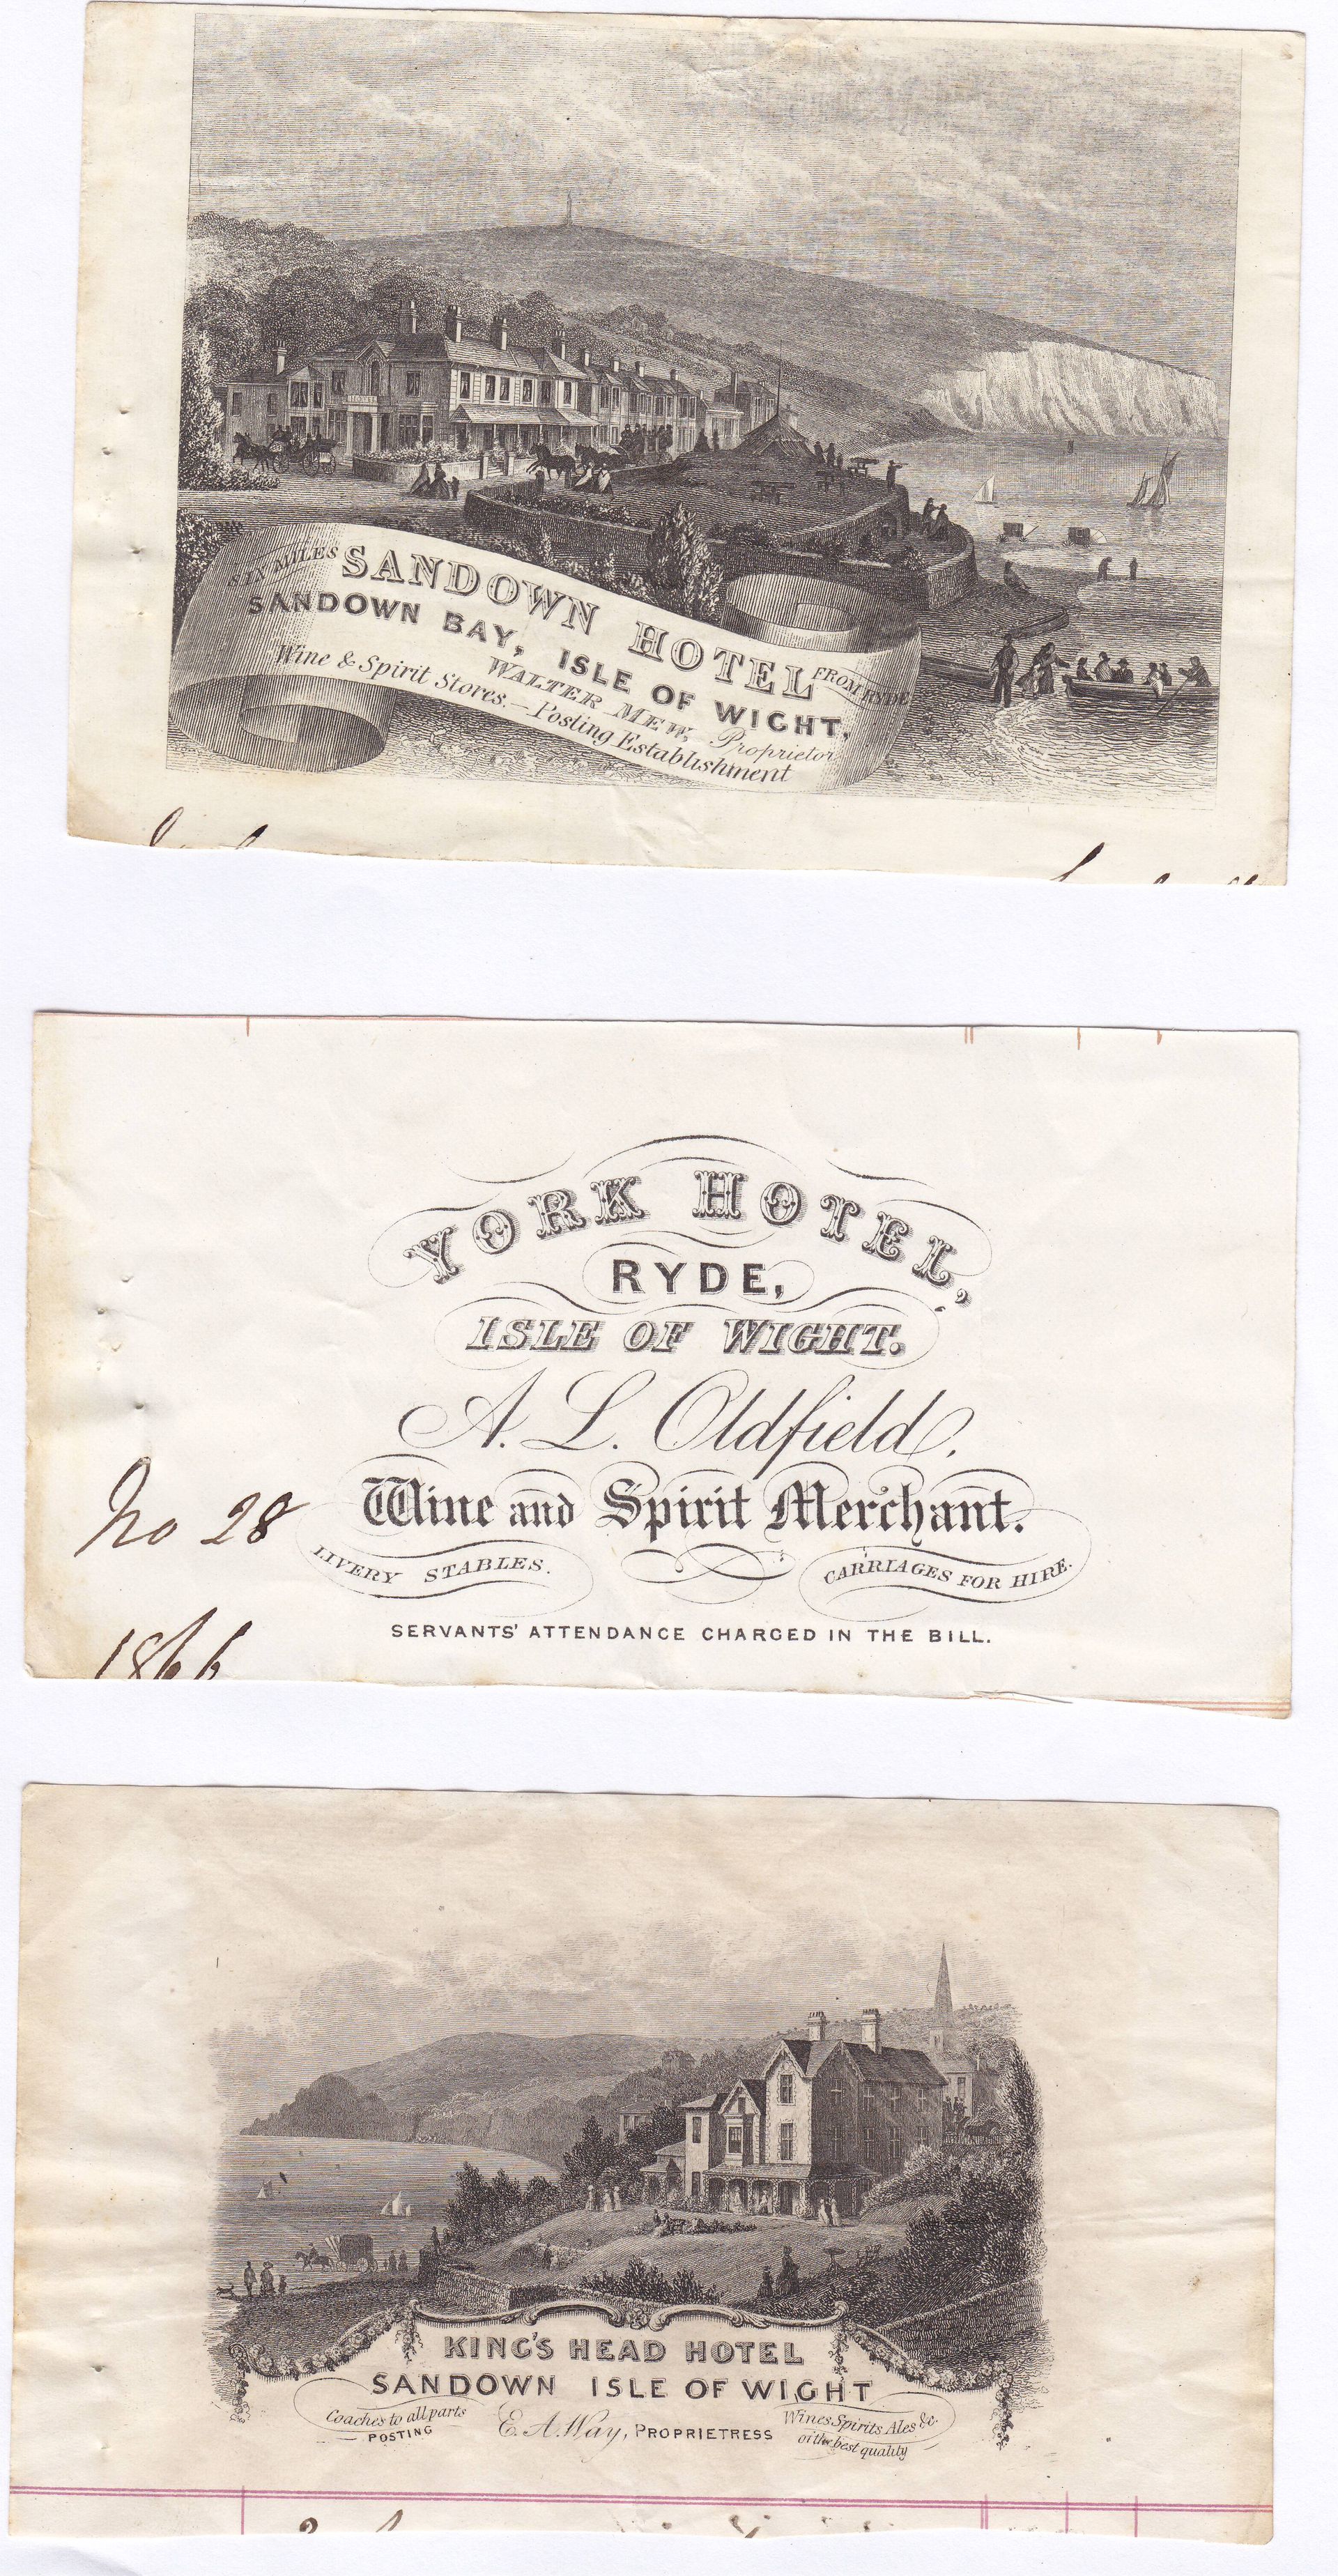 HOTEL
SIX MILES SANDOWN HOTEL FROM RYDE
SANDOWN BAY, ISLE OF WIGHT,
WALTER MEW, Proprietor
Wine & Spirit Stores.—Posting Establishment
YORK HOTEL,
RYDE,
ISLE OF WIGHT.
A. L. Oldfield,
Wine and Spirit Merchant.
No 28
LIVERY STABLES.
CARRIAGES FOR HIRE.
SERVANTS' ATTENDANCE CHARGED IN THE BILL.
1866
KING'S HEAD HOTEL
SANDOWN ISLE OF WIGHT
Coaches to all parts
POSTING
E. A. Way, PROPRIETRESS
Wines Spirits Ales &c.
of the best quality